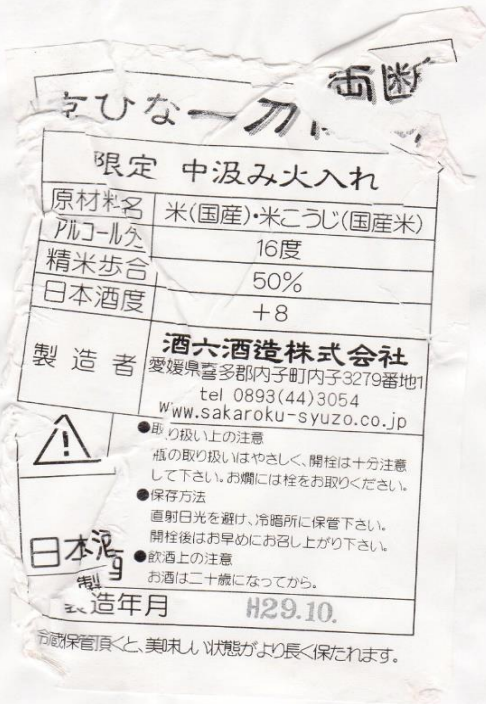 両断
京ひな一刀
限定 中汲み火入れ
原材料名 米(国産)・米こうじ(国産米)
アルコール分 16度
精米歩合 50%
日本酒度 +8
製造者 酒六酒造株式会社
愛媛県喜多郡内子町内子3279番地1
tel 0893(44)3054
www.sakaroku-syuzo.co.jp
●取り扱い上の注意
瓶の取り扱いはやさしく、開栓は十分注意
して下さい。お燗には栓をお取りください。
●保存方法
直射日光を避け、冷暗所に保管下さい。
開栓後はお早めにお召し上がり下さい。
●飲酒上の注意
お酒は二十歳になってから。
日本酒
製
製造年月 H29.10.
冷蔵保管頂くと、美味しい状態がより長く保たれます。